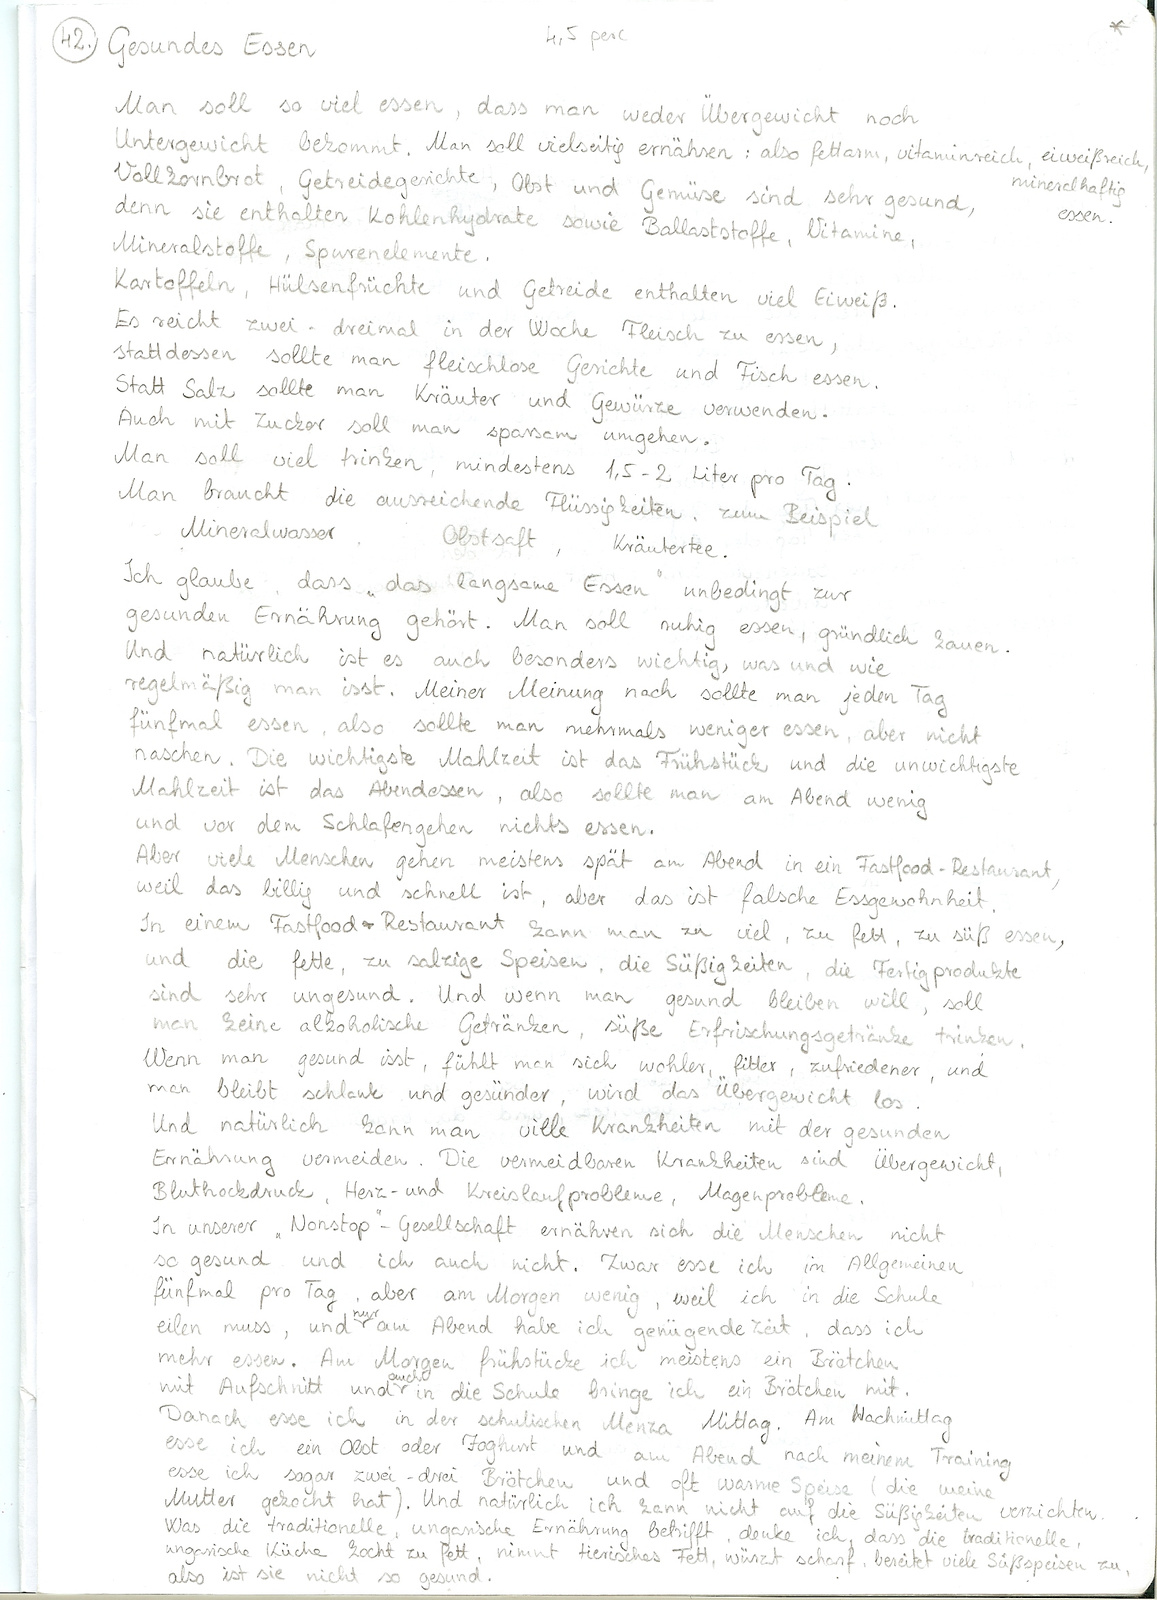 42. Gesundes Essen
4,5 perc
*
Man soll so viel essen, dass man weder Übergewicht noch
Untergewicht bekommt. Man soll vielseitig ernähren: also fettarm, vitaminreich, eiweißreich,
mineralhaftig
essen.
Vollkornbrot, Getreidegerichte, Obst und Gemüse sind sehr gesund,
denn sie enthalten Kohlenhydrate sowie Ballaststoffe, Vitamine,
Mineralstoffe, Spurenelemente.
Kartoffeln, Hülsenfrüchte und Getreide enthalten viel Eiweiß.
Es reicht zwei - dreimal in der Woche Fleisch zu essen,
stattdessen sollte man fleischlose Gerichte und Fisch essen.
Statt Salz sollte man Kräuter und Gewürze verwenden.
Auch mit Zucker soll man sparsam umgehen.
Man soll viel trinken, mindestens 1,5-2 Liter pro Tag.
Man braucht die ausreichende Flüssigkeiten, zum Beispiel
Mineralwasser, Obstsaft, Kräutertee.
Ich glaube, dass „das langsame Essen" unbedingt zur
gesunden Ernährung gehört. Man soll ruhig essen, gründlich kauen.
Und natürlich ist es auch besonders wichtig, was und wie
regelmäßig man isst. Meiner Meinung nach sollte man jeden Tag
fünfmal essen, also sollte man mehrmals weniger essen, aber nicht
naschen. Die wichtigste Mahlzeit ist das Frühstück und die unwichtigste
Mahlzeit ist das Abendessen, also sollte man am Abend wenig
und vor dem Schlafengehen nichts essen.
Aber viele Menschen gehen meistens spät am Abend in ein Fastfood-Restaurant,
weil das billig und schnell ist, aber das ist falsche Essgewohnheit.
In einem Fastfood-Restaurant kann man zu viel, zu fett, zu süß essen,
und die fette, zu salzige Speisen, die Süßigkeiten, die Fertigprodukte
sind sehr ungesund. Und wenn man gesund bleiben will, soll
man keine alkoholische Getränken, süße Erfrischungsgetränke trinken.
Wenn man gesund isst, fühlt man sich wohler, fitter, zufriedener, und
man bleibt schlank und gesünder, wird das Übergewicht los.
Und natürlich kann man viele Krankheiten mit der gesunden
Ernährung vermeiden. Die vermeidbaren Krankheiten sind Übergewicht,
Bluthockdruck, Herz- und Kreislaufprobleme, Magenprobleme.
In unserer „Nonstop"- Gesellschaft ernähren sich die Menschen nicht
so gesund und ich auch nicht. Zwar esse ich im Allgemeinen
fünfmal pro Tag, aber am Morgen wenig, weil ich in die Schule
eilen muss, und nur am Abend habe ich genügende Zeit, dass ich
mehr essen. Am Morgen frühstücke ich meistens ein Brötchen
mit Aufschnitt und auch in die Schule bringe ich ein Brötchen mit.
Danach esse ich in der schulischen Menza Mittag. Am Nachmittag
esse ich ein Obst oder Joghurt und am Abend nach meinem Training
esse ich sogar zwei-drei Brötchen und oft warme Speise (die meine
Mutter gekocht hat). Und natürlich ich kann nicht auf die Süßigkeiten verzichten.
Was die traditionelle, ungarische Ernährung betrifft, denke ich, dass die traditionelle,
ungarische Küche kocht zu fett, nimmt tierisches Fett, würzt scharf, bereitet viele Süßspeisen zu,
also ist sie nicht so gesund.